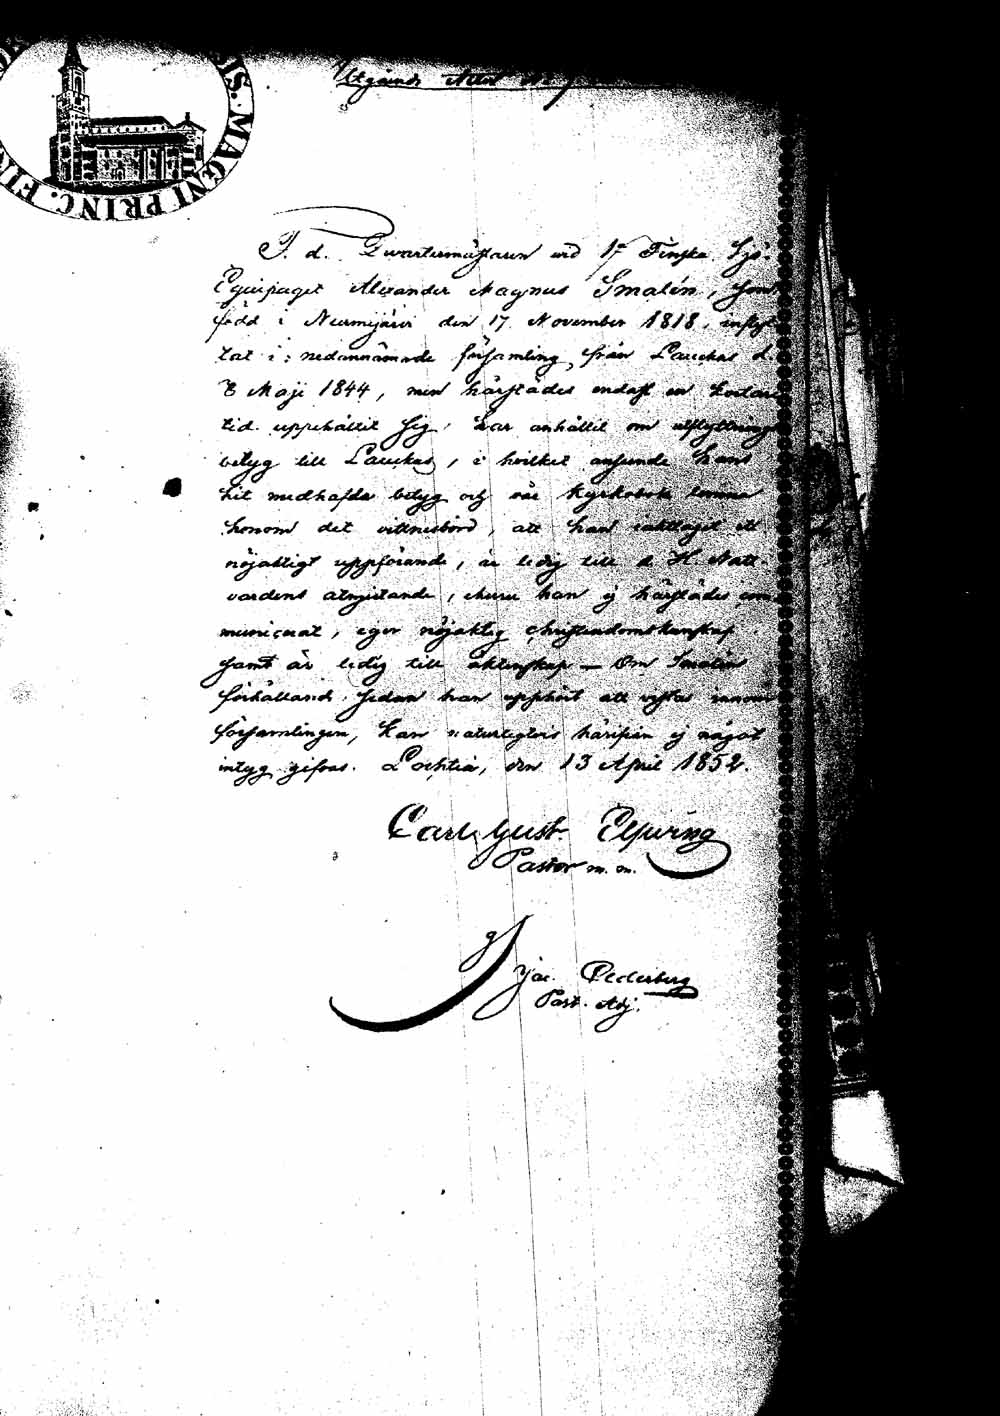 MAGNI PRINC. FIN
Utgående Attest
F. d. Qvartermästaren vid 1:a Finska Sjö-
Equipaget Alexander Magnus Smalén, som
född i Nurmijärvi den 17 November 1818, inflyt-
tat i nedannämnde församling från Laukas d.
8 Maji 1844, men härstädes endast en kortare
tid uppehållit sig, har anhållit om utflyttnings
betyg till Laukas, i hvilket afseende hans
hit medhafda betyg och vår kyrkobok lemna
honom det vittnesbörd, att han iakttagit ett
nöjaktigt uppförande, är ledig till d. H. Natt-
vardens åtnjutande, ehuru han ej härstädes com-
municerat, eger nöjaktig christendomskunskap
samt är ledig till äktenskap — Om Smaléns
förhållande sedan han upphört att vistas inom
församlingen, kan naturligtvis härifrån ej något
intyg gifvas. Lochteå, den 13 April 1852.
Carl Gust. Elfving
Pastor m. m.
Jac. Cederberg
Past. Adj.